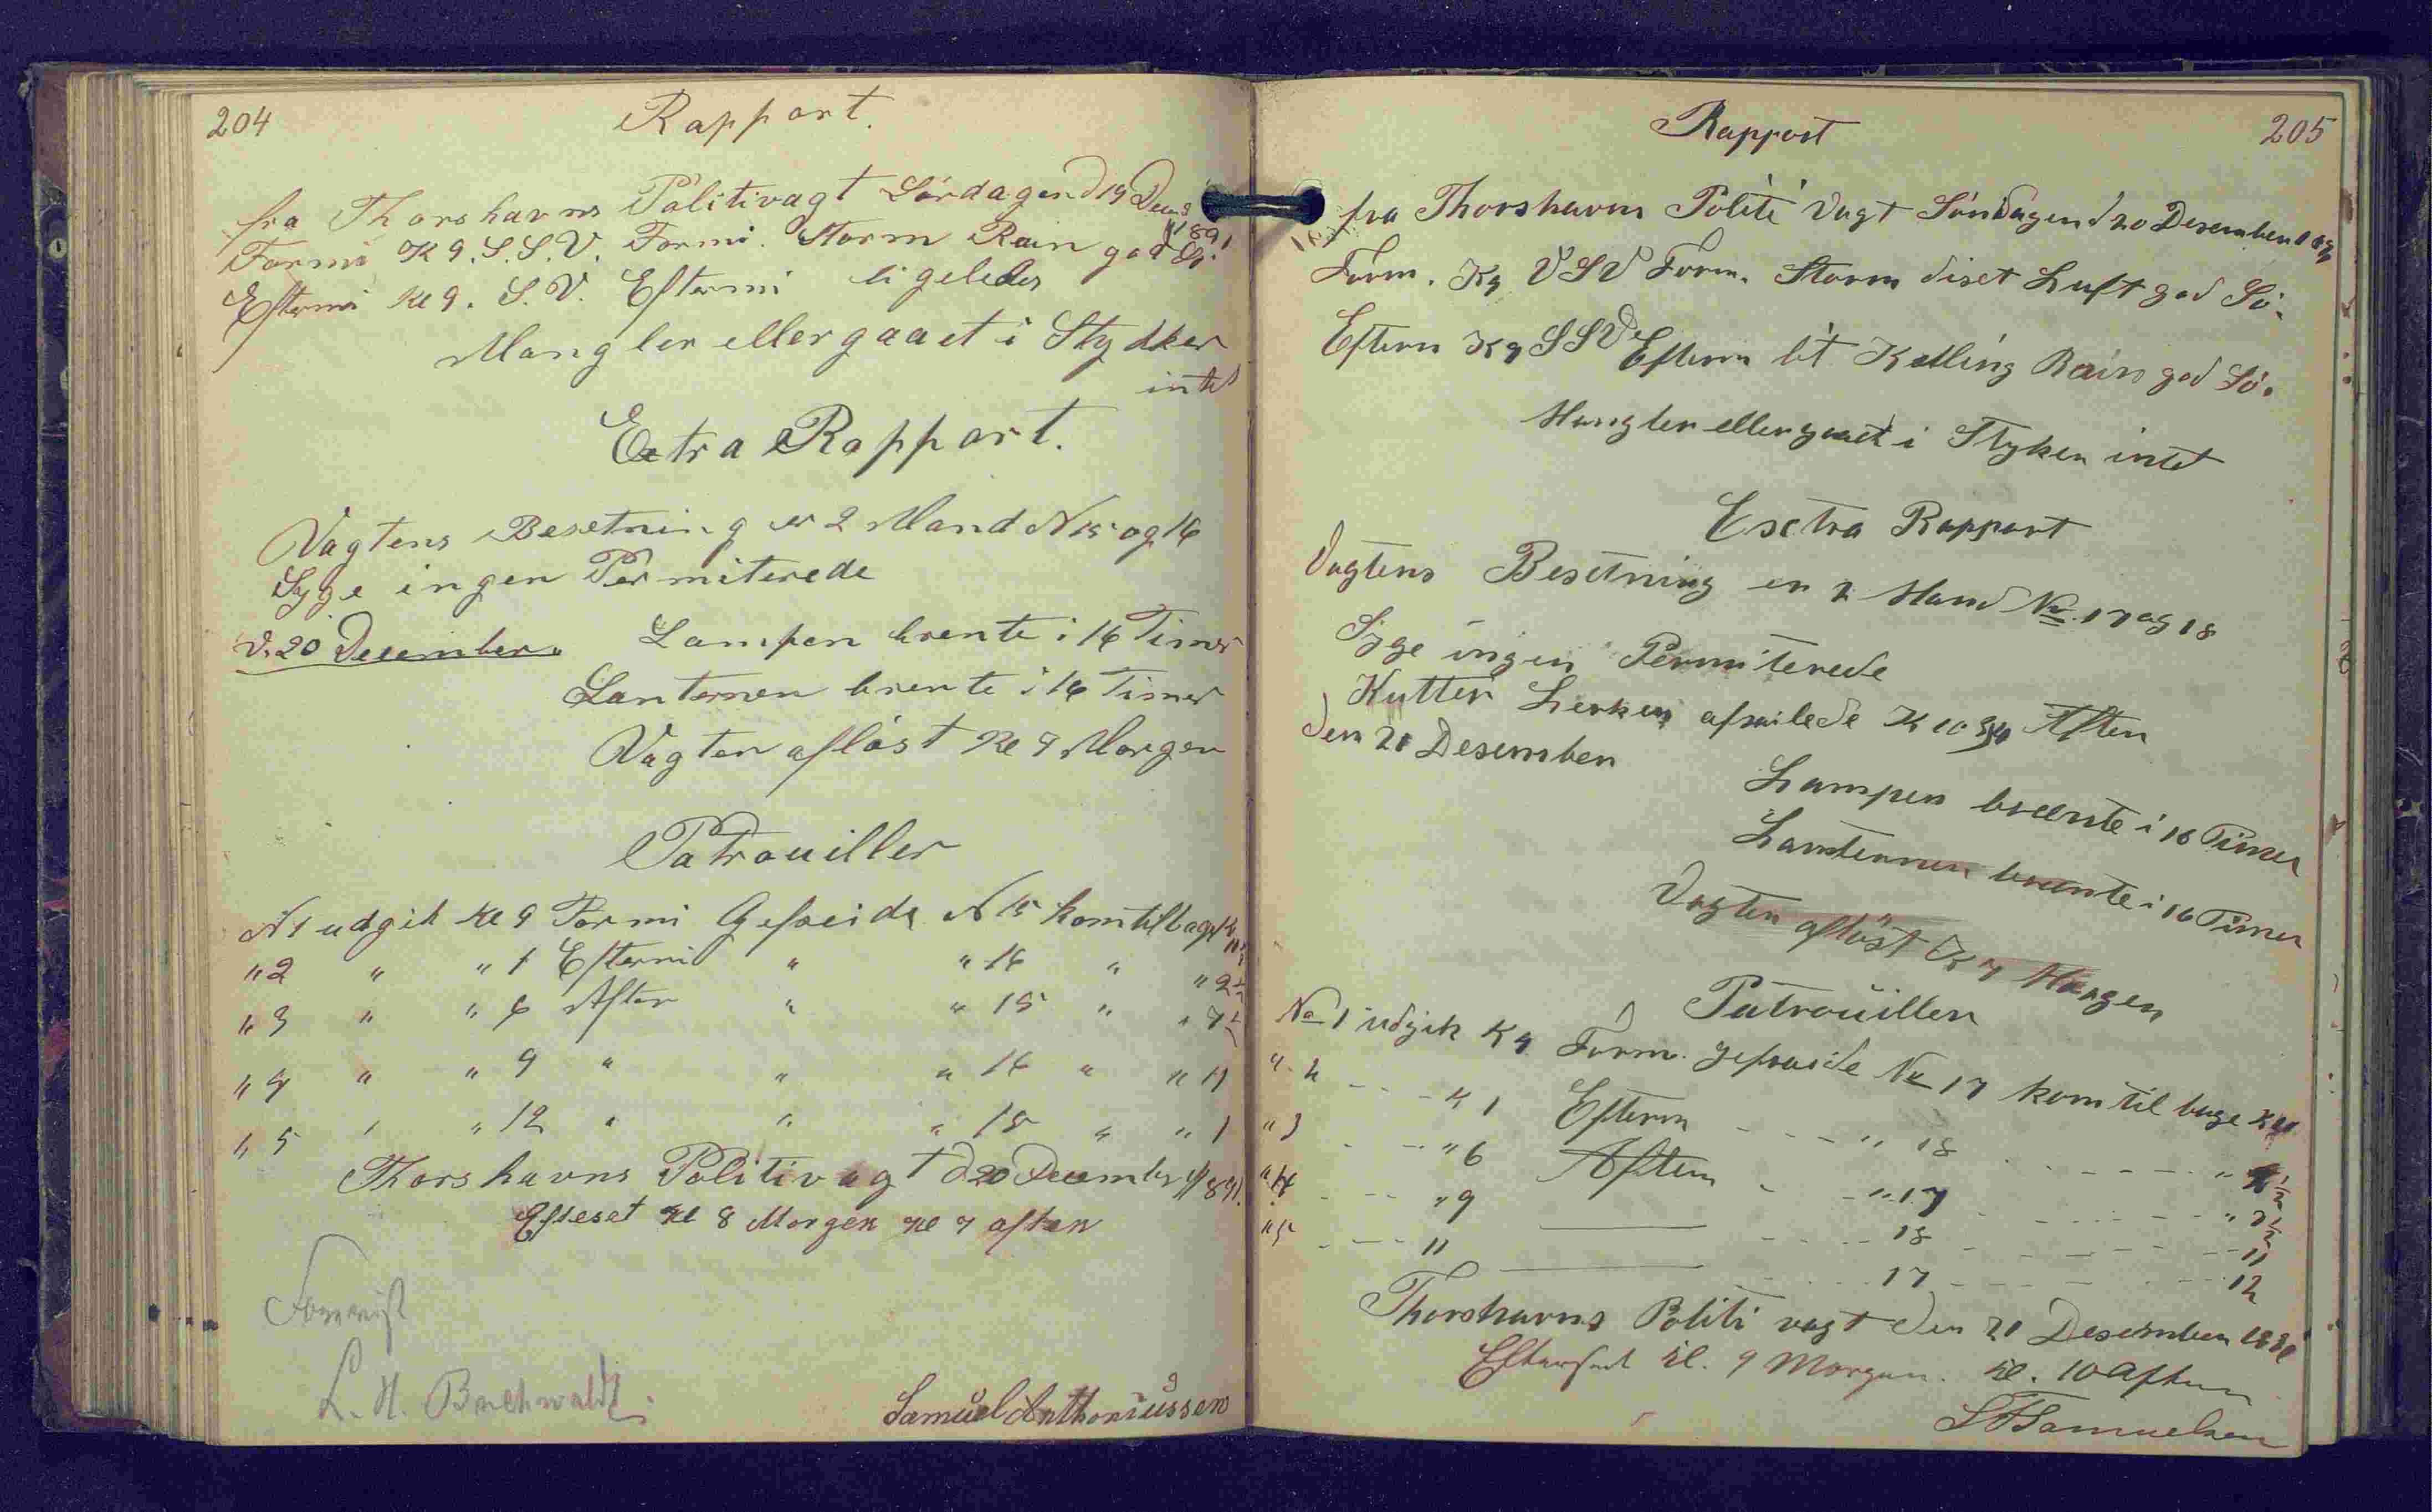 204
Rapport.
fra Thorshavns Politivagt Lördagen d 19 Decemb 1891
Formi Kl 9. S.S.V. Formi. Storm Rain god Sö.
Eftermi Kl 9. S.V. Eftermi ligeledes
Mangler eller gaaet i Stykker
intet
Extra Rapport.
Vagtens Besetning er 2 Mand N 15 og 16
Syge ingen Permiterede
d. 20 Desember. Lampen brente i 16 Timer
Lanternen brente i 16 Timer
Vagten aflöst Kl 9 Morgen
Patrouiller
N 1 udgik Kl 9 Formi Gefreide N 15 kom tilbage Kl
"2 " "1 Eftermi " "16 " "2½
"3 " "6 Aften " "15 " "7½
"4 " "9 " " "16 " "11
"5 " "12 " " "15 " "1
Thorshavns Politivagt d 20 Decemb 1891.
Efteset Kl 8 Morgen Kl 7 aften
L. H. Buchwaldt.
Samuel Anthoniussen
205
Rapport
fra Thorshavns Politi Vagt Söndagen d 20 Desember 189
Form. K 9 VSV Form. Storm diset Luft god Sö.
Efterm K 9 SSV Efterm lit Kulling Rain god Sö.
Mangler eller gaaet i Styker intet
Esctra Rapport
Vagtens Besetning er 2 Mand No. 17 og 18
Syge ingen Permiterede
Kutter Lerken afseilede K 10 3/4 Aften
den 21 Desember
Lampen brente i 16 Timer
Lanternen brente i 16 Timer
Vagten aflöst K 9 Morgen
Patrouiller
No 1 udgik K 9 Form. gefraide No 17 kom til bage K 11
" 2 - - - K 1 Efterm - - - " 18 - - - "
" 3 - - - " 6 Aften - - " 17 - - - " 7½
" 4 - - - " 9 —— - - - 18 - - - 11
" 5 - - - 11 —— - - - 17 - - - 12
Thorshavns Politi vagt den 21 Desember 1891
Efterset kl. 9 Morgen. kl. 10 aften
Samuelsen